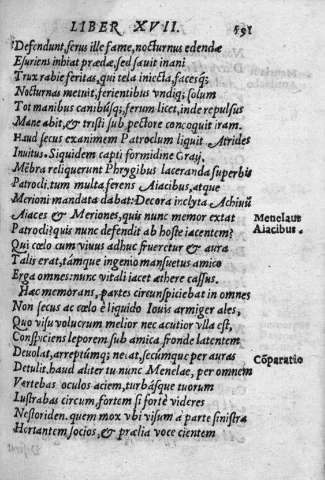 LIBER XVII. 591
Defendunt, ferus ille fame, nocturnus edendæ
Esuriens inhiat prædæ, sed sauit inani
Trux rabie feritas, qui tela iniecta, facesq;
Nocturnas metuit, ferientibus vndiq; solum
Tot manibus canibúsq; ferum licet, inde repulsus
Mane abit, & tristi sub pectore concoquit iram.
Haud secus exanimem Patroclum liquit Atrides
Inuitus. Siquidem capti formidine Graij,
Mẽbra reliquerunt Phrygibus laceranda superbis
Patrocli. tum multa ferens Aiacibus, atque
Merioni mandata dabat: Decora inclyta Achiuũ
Aiaces & Meriones, quis nunc memor extat
Menelaus
Patrocli? quis nunc defendit ab hoste iacentem?
Aiacibus.
Qui cœlo cum viuus adhuc frueretur & aura
Talis erat, támque ingenio mansuetus amico
Erga omnes: nunc vitali iacet æthere cassus.
Hæc memorans, partes circunspiciebat in omnes
Non secus ac cœlo è liquido Iouis armiger ales,
Quo visu volucrum melior nec acutior vlla est,
Conspiciens leporem, sub amica fronde latentem
Deuolat, arreptúmq; necat, secúmque per auras
Cõparatio
Detulit. haud aliter tu nunc Menelae, per omnem
Vertebas oculos aciem, turbásque tuorum
Lustrabas circum, fortem si fortè videres
Nestoriden. quem mox vbi visum à parte sinistra
Hortantem socios, & prælia voce cientem